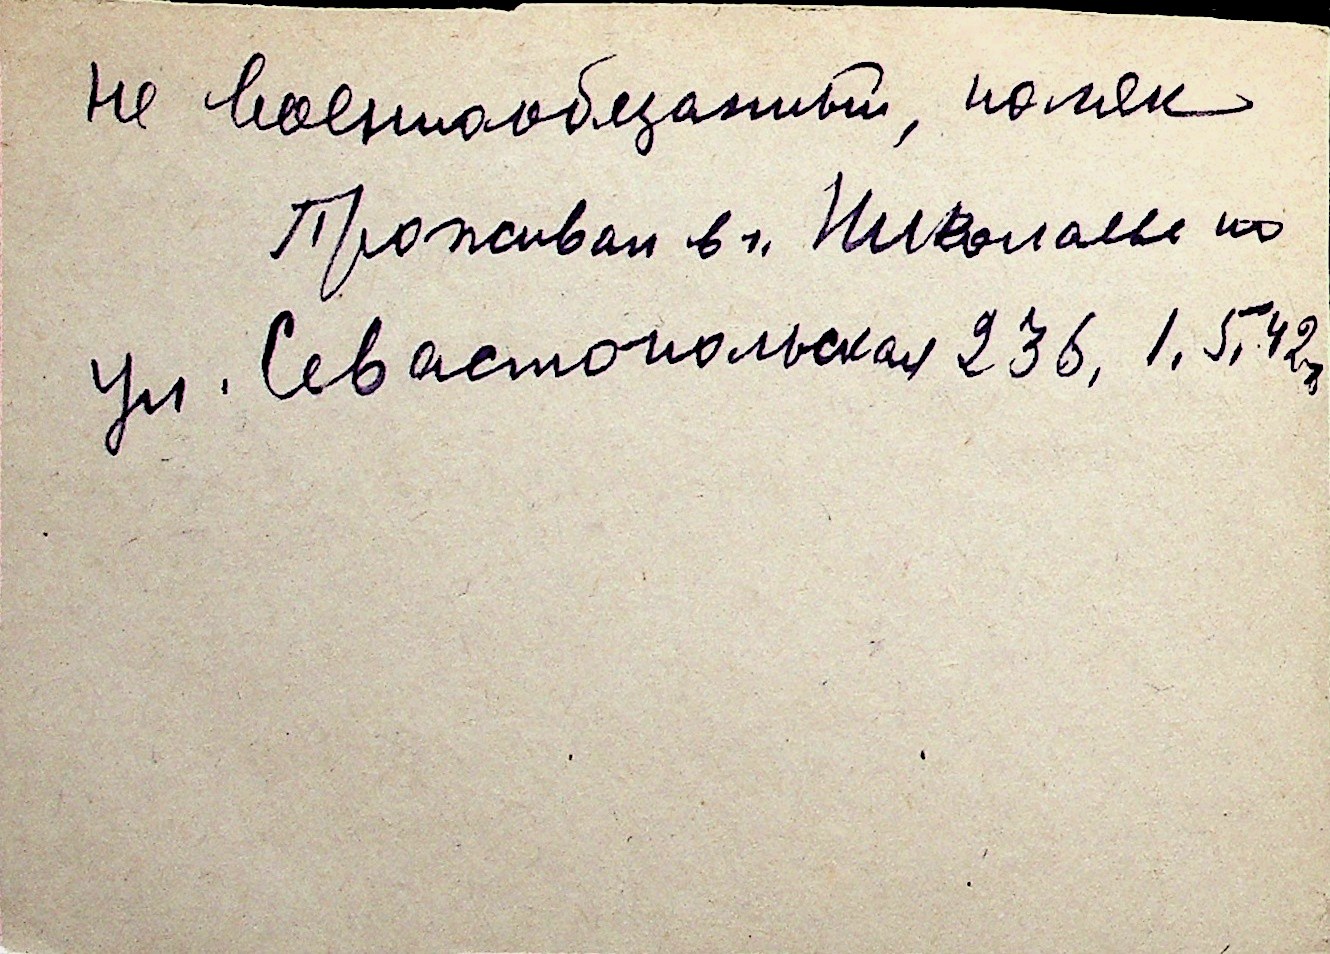 не военнообязанный, поляк
Проживал в г. Николаеве по
ул. Севастопольская 236, 1.5.42г